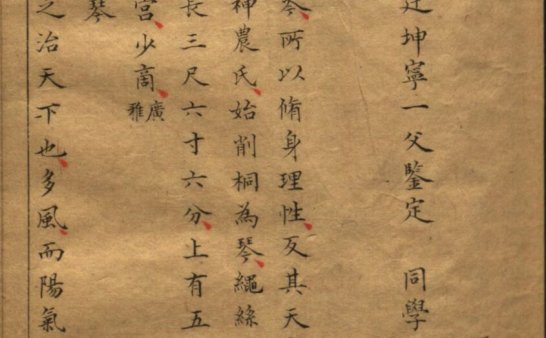 坤寧一父鑒定　同學
琴所以脩身理性反其天
神農氏始削桐為琴繩絲
長三尺六寸六分上有五
宮少商廣雅
琴
之治天下也多風而陽氣